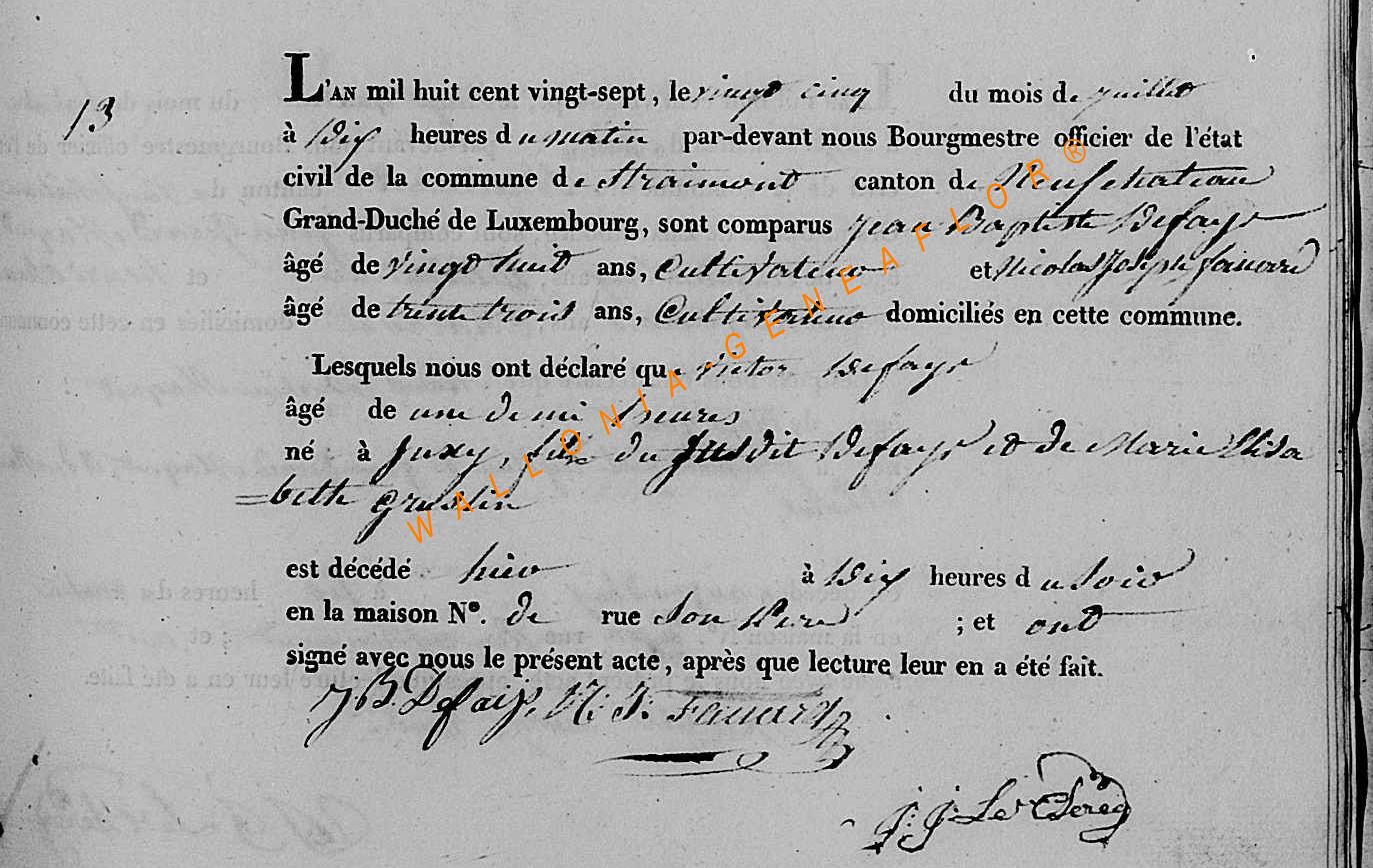 13
L'AN mil huit cent vingt-sept, le vingt cinq du mois de juillet
à Dix heures du matin par-devant nous Bourgmestre officier de l'état
civil de la commune de Straimont canton de Neufchateau
Grand-Duché de Luxembourg, sont comparus jean Baptiste Defays
âgé de vingt huit ans, Cultivateur et Nicolas Joseph
âgé de trente trois ans, Cultivateur domiciliés en cette commune.
Lesquels nous ont déclaré que Victor Defays
âgé de une demi heures
né à Juxy, fils du Defays et de Marie Elisa
=beth
est décédé hier à Dix heures du soir
en la maison N°. de rue Son Pere ; et ont
signé avec nous le présent acte, après que lecture leur en a été fait.
JB. Defais, N: J:
J: J: Le
WALLONIA-GENEAFLOR®